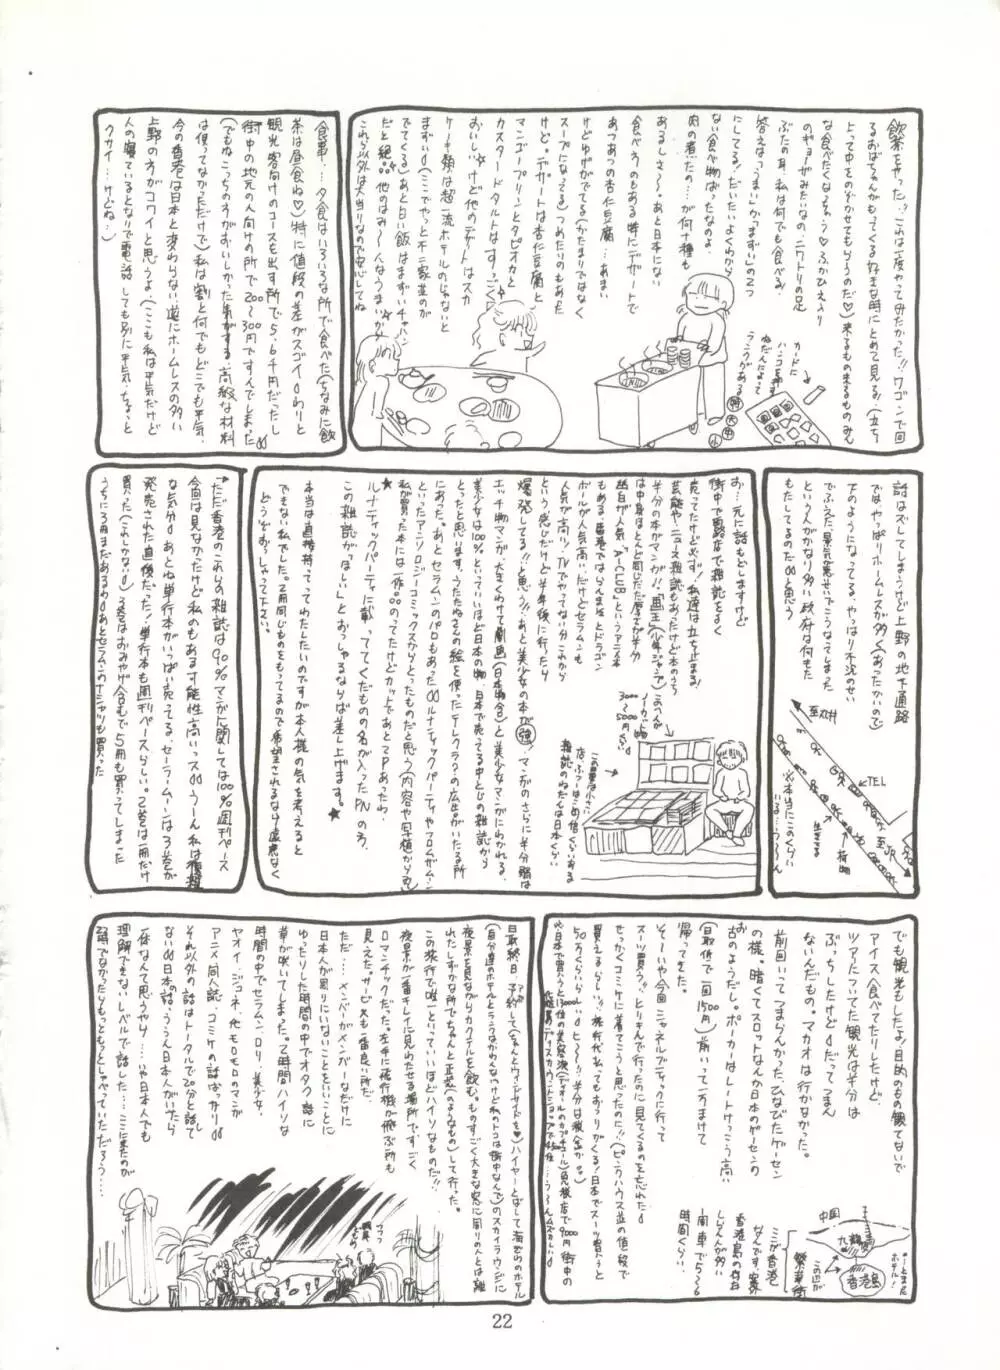 飲茶をやった。これは一度やってみたかった!! ワゴンで回
るおばちゃんがもってくる好きな時にとめて見る。(立ち
よって中をのぞかせてもらうのだ♡)来るもの来るものみん
な食べたくなっちゃう♡ふかひれ入り
のギョーザみたいなの、ニワトリの足
ぶたの耳、私は何でも食べる!
答えは「うまい」か「まずい」の2つ
にしてる!だいたいよくわから
ない食べ物ばっかなのよ。
肉の煮たの…が何十種も
あるしさ〜。あと日本にない
食べものもある 特にデザートで
あつあつの杏仁豆腐…あまい
けどゆげがでてる(かたまりではなく
スープになってる)つめたいのもあった
けど。デザートは杏仁豆腐と
マンゴープリンとタピオカと
カスタードタルトはすっごく
おいしい☆けど他のデザートはスカ
ケーキ類は超一流ホテルのじゃないと
まずい(ここでやっと不二家並のが
でてくる)あと白い飯はまずいチャハン
だと絶。他のはみ〜んなうまいから
これら以外は大当りなので安心してね
カードに
ハンコを押す
ねだんによって
ランクがある
特
大
中
小
食事…夕食はいろいろな所で食べた(ちなみに飲
茶は昼食ね♡)特に値段の差がスゴイ わりと
観光客向けのコースを出す所で5,6千円だったし
街中の地元の人向けの所で200〜300円ですんでしまった
(でもねこっちの方がおいしかった気がする。高級な材料
は使ってなかっただけで)私は割と何でもどこでも平気。
今の香港は日本と変わらない 道にホームレスの多い
上野の方がコワイと思うよ(ここも私は平気だけど
人の寝ているとなりで電話しても別に平気。ちょっと
クサイ…けどね…)
話はズレてしまうけど上野の地下通路
ではやっぱりホームレスが多く(あったかいので)
下のようになってる。やっぱり不況のせい
でふえた。景気悪いでこうなってしまった
という人がかなり多い 政府は何をもた
もたしてるのだと思う
至丸井
TEL
至JR
荷物
生きてる
※本当にこのくらい
いる…う〜ん
お…元に話もどしますけど
街中で露店で雑誌をよく
売ってたけど必ず!私達は立ち止まる!
芸能やニュース雑誌もあったけど本のうち
半分の本がマンガ!!「画王」(少年ジャンプ)
は中身はほとんど同じだた。厚さが半分
幽白が人気、「A-CLUB」というアニメ本
もある 香港ではらんま1/2とドラゴン
ボールが人気高い、だけどセラムンも
人気が高い。TVでやってない分 これから
という感じだけど半年後に行ったら
爆発してる!!と思う!!あと美少女の本が強。マンガのさらに半分弱は
エッチ物マンガ、大きくわけて劇画(日本物含)と美少女マンガにわかれる。
美少女は100%といっていいほど日本の物、日本で売ってる中とじの雑誌から
とったと思います。うたたねさんの絵を使ったテレクラ?の広告がいたる所
にあった。あとセラムンのパロもあった ルナティックパーティやフロムザムーン
といったアンソロジーコミックスからとったものだと思う(内容や写植から見)
私が買った本には一作。のってたけどカットであとでPあったわ、
ルナティックパーティに載ってくだもの名が入ったPNの方、
この雑誌がほしい」とおっしゃるならば差し上げます。★
本当は直接持っててわたしたいのですが本人様の気を考えると
でもない私でした。2冊同じものをもってるので希望されるなら遠慮なく
どうぞおっしゃって下さい。
このへんが
ノーカット
3000〜5000円
ぐらい
この露店は小さい
店。ふつーはこの倍くらいある
雑誌のねだんは日本ぐらい
ただ香港のこれらの雑誌は90%マンガに関しては100%週刊ペース
今回は見なかたけど私のもある可能性高いっス うーん私は複雑
な気分 あとね単行本がいっぱい売ってる。セーラームーンは3巻が
発売された直後だった!単行本も週刊ペースらしい。2巻は一冊だけ
買った(これしかない)3巻はおみやげ含むで5冊も買ってしまった
うちに3冊まだあるわ あとセラムンのTシャツも買った
でも観光もしたよ!目的のもの観てないで
アイス食べてたりしたけど。
ツアーについてた観光は半分は
ぶっちしたけど だってつまん
ないんだもの。マカオは行かなかった。
前回いってつまらんかった、ひなびたゲーセン
の様。暗くてスロットなんか日本のゲーセンの
お古のようだし。ポーカーはレートけっこう高い
(最低で一回1500円)前いって一万まけて
帰ってきた。
そーいや今回シャネルブティックに行って
スーツ買ってくるのを忘れた
せっかくコミケに着てこうと思ったのに!!(ピンクハウス並の値段で
買えるらしい)。旅行代払ってもおつりがくる!日本でスーツ買うと
50万くらいらしい ヒ〜!!半分は税金か。
中国
九龍
香港島
ここが香港
なんです。案外
しらん人が多い
香港島の方は
一周車で5〜6
時間くらい。
このへんが
繁華街
わーとまった
ホテル!
日取終日、予約して(ちゃんとウィンドサイドを♥)ハイヤーとばして海ぞいのホテル
(自分達のホテルとランクはかわんないけど私のトコは街中なんで)のスカイラウンジに
夜景を見ながらカクテルを飲む。ものすごく大きな窓に周りの人とは離
れたしずかな所でちゃんと正装(のようなもの)して行った。
この旅行で唯一といっていいほどハイソなものだ!!
夜景が一番キレイに見わたせる場所ですごく
ロマンチックだった。左手に飛行機が飛ぶ所も
見えた。サービスも一番良い所だ。
ただ…メンバーがメンバーなだけに
日本人が周りにいないことをいいことに
ゆったりした時間の中でオタク話に
華が咲いてしまった。2時間ハイソな
時間の中でセラムン、ロリ、美少女、
ヤオイ、ジュネ、他モロモロのマンガ
アニメ同人誌、コミケの話ばっかり
それ以外の話はトータルで20分と話して
ない 日本の話。ううん日本人がいたら
一体なんて思うやら……いや日本人でも
理解できないレベルで話した……ここに来たのが
2時でなかったらもっともっとしゃべっていただろう…
22